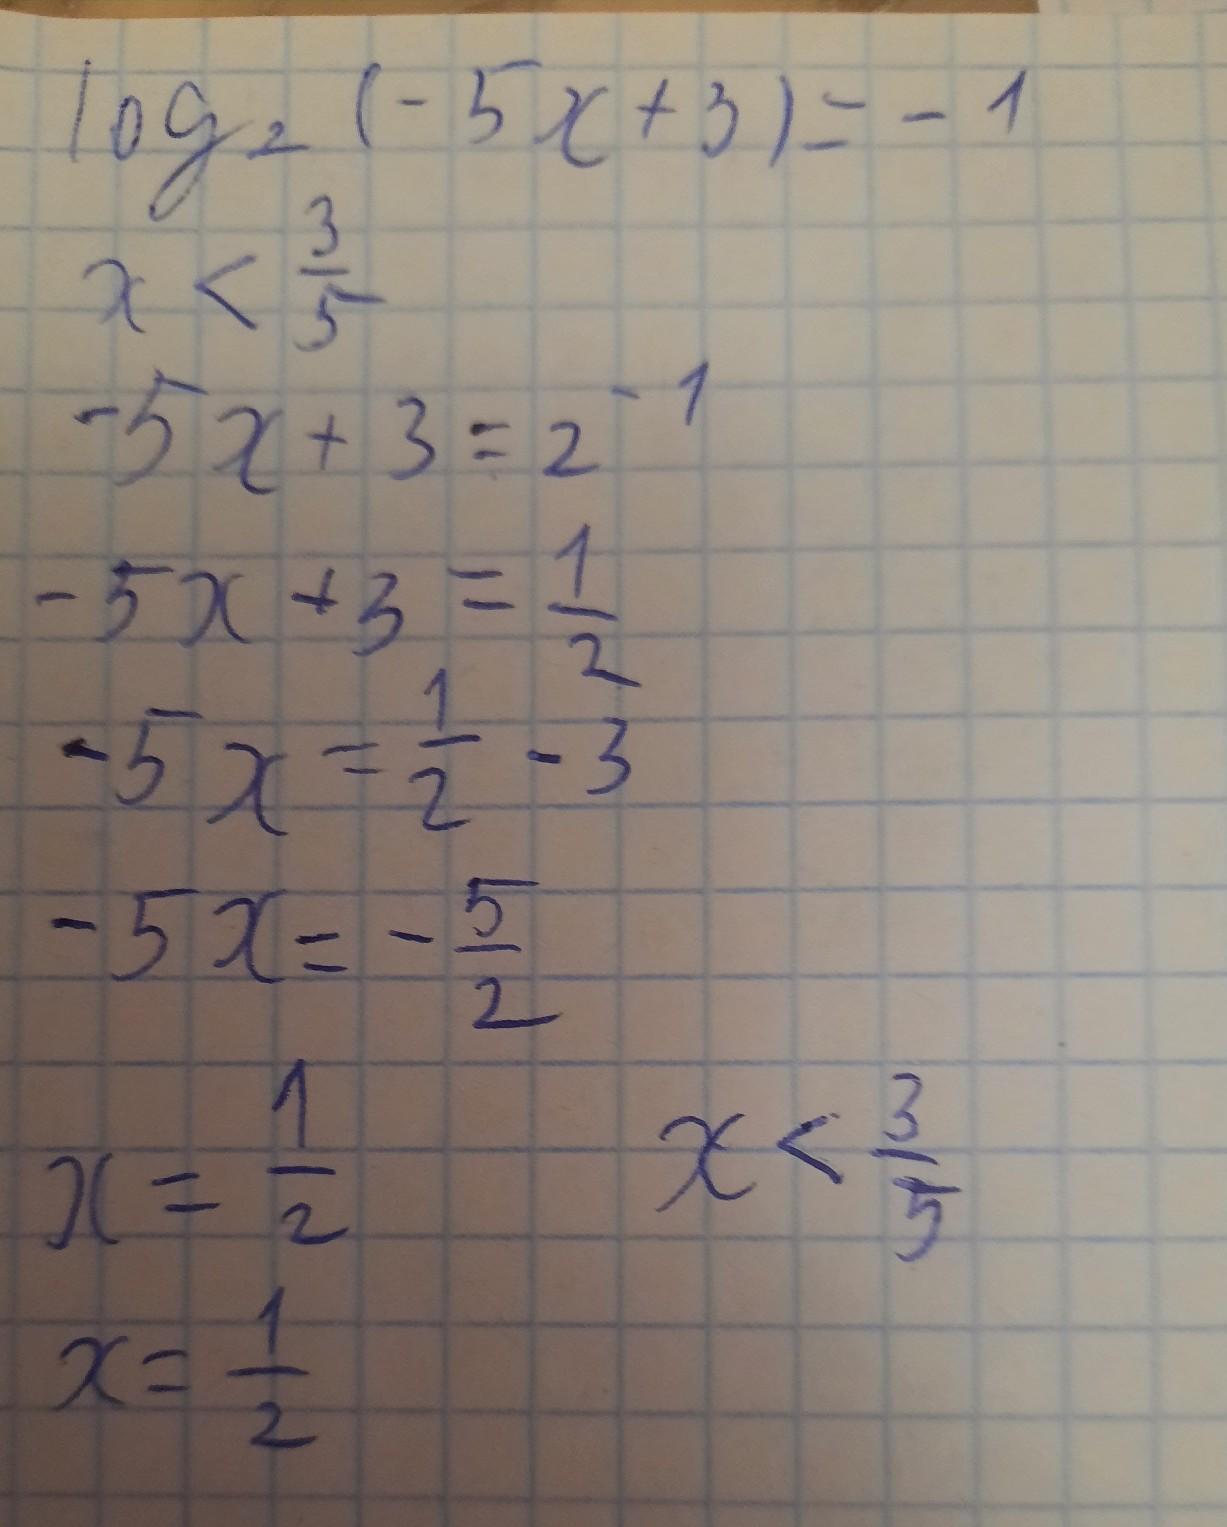 log₂ (-5x+3) = -1
x < 3/5
-5x + 3 = 2⁻¹
-5x + 3 = 1/2
-5x = 1/2 - 3
-5x = - 5/2
x = 1/2 x < 3/5
x = 1/2